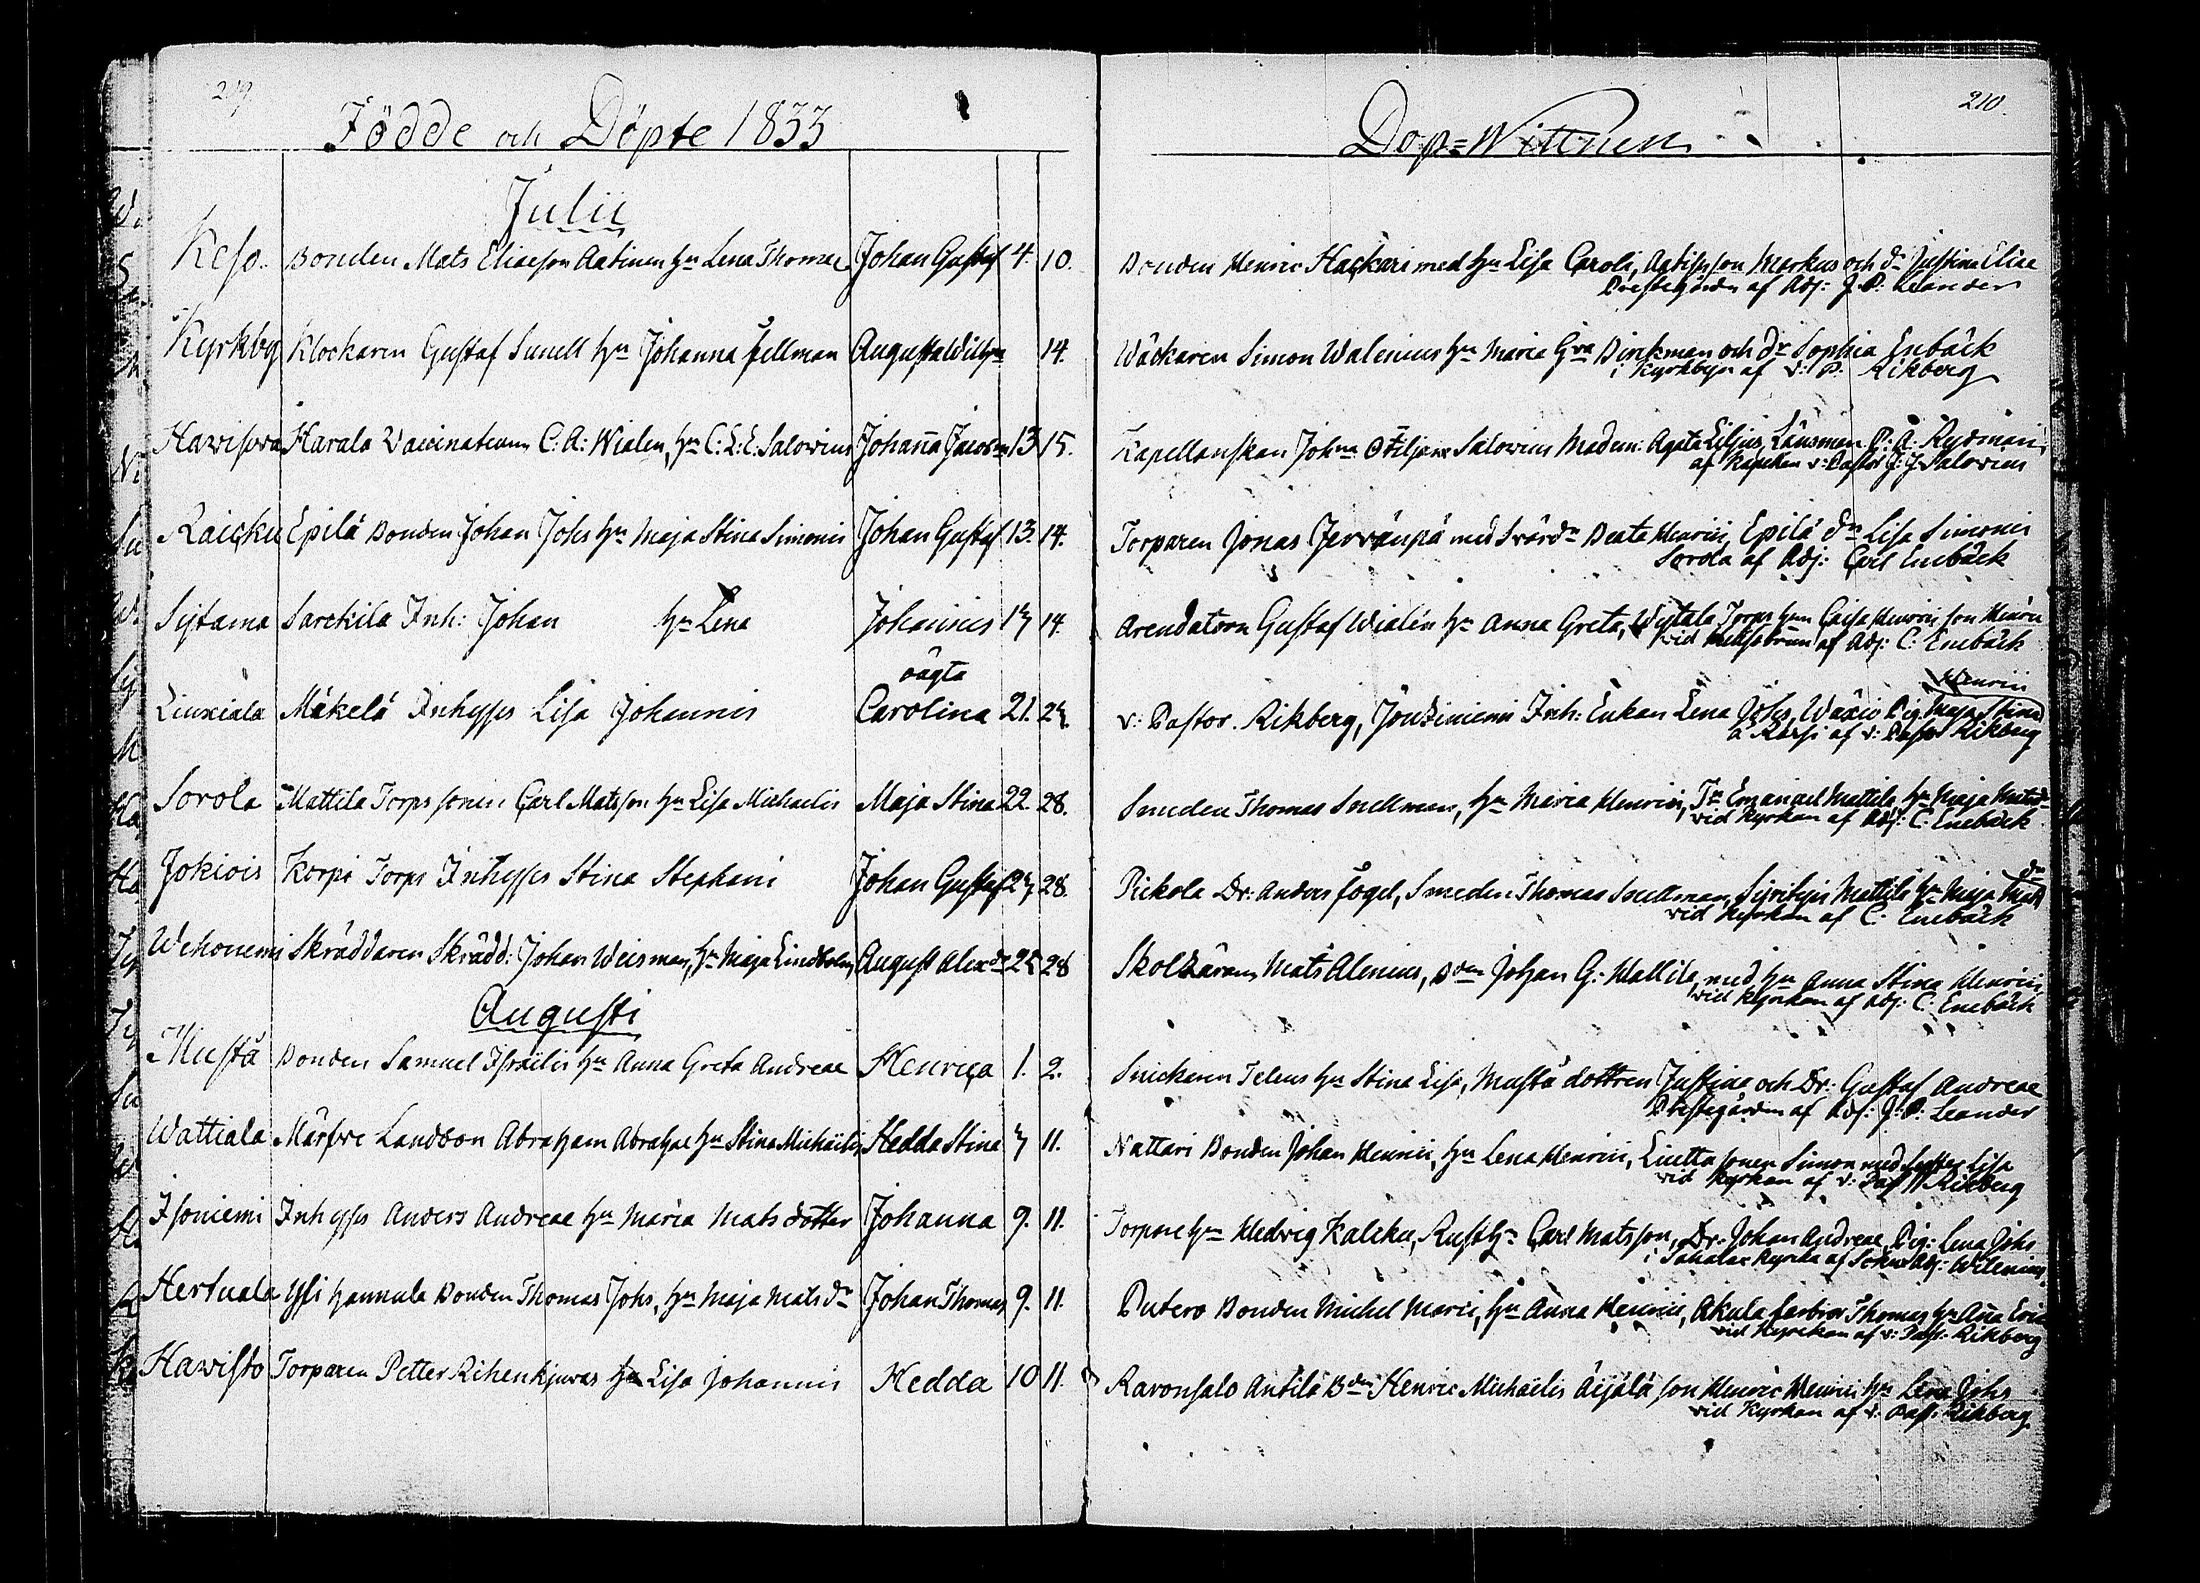 209.
Födde och Döpte 1833
Julii
Keso. Bonden Mats Eliaeson Aatinen hu Lena Thomae Johan Gustaf 4. 10.
Kyrkby Klockaren Gustaf Sunell hu Johanna Fellman Augusta Wilhna 14.
Harala Vaccinateuren C: A: Wialen, hu C: L: E: Salovius Johanna Jacobna 13 15.
Laicku Epilä Bonden Johan Johs hu Maja Stina Simonis Johan Gustaf 13. 14.
Sytama Sarckila Inh: Johan hu Lena Johannes 14.
oägta
Liuxiala Mäkelä Inhyses Lisa Johannis Carolina 21. 24.
Sorola Mattila Torps sonen Carl Matsson hu Lisa Michaelis Maja Stina 22. 28.
Jokiois Korpi Torps Inhyses Stina Stephani Johan Gustaf 24 28.
Wehoniemi Skräddaren Skrädd: Johan Weisman, hu Maja Lindholm, August Alexdr 25 28
Augusti
Mustä Bonden Samuel Israëlis hu Anna Greta Andreae Henrica 1. 2.
Wattiala Märfvre Landbon Abraham Abrahae hu Stina Michaëlis Hedda Stina 4 11.
Isoniemi Inhyses Anders Andreae hu Maria Mats dotter Johanna 9. 11.
Hertuala Yli Hannula Bonden Thomas Johs, hu Maja Mats dr Johan Thomas 9. 11.
Hawisto Torparen Petter Rihenkjuvas hu Lisa Johannis Hedda 10 11.
210.
Dop=Wittnen
Bonden Henric Hackari med hu Lisa Caroli, Markus och dr Justina Eliae
Prestegården af Adj: J. P. Leander
Simon Walenius hu Maria Dirckman och dr Sophia Enebäck
i Kyrkbyn af v: P. Rikberg
Kapellanskan Johna Salovius Madem: Agata Liljus, Länsman P: A: Rydman,
af Kapellan v: Pastor J: J: Salovius
Torparen Jonas Jerränpä med Svärdr Beata Henrici, Epilä drn Lisa Simonis
Sorola af Adj: Carl Enebäck
Arendatorn Gustaf Wialén hu Anna Greta, Torps Caisa Henrici son Henric
vid af Adj: C: Enebäck
Henrici
v: Pastor. Rikberg, Inh: Enkan Lena Johs, Pig. Maja Stina
å af v: Pastor Rikberg
Smeden Thomas Snellman, hu Maria Henrici, Tr. Emanuel Mattila, hu Maja Matsdr
vid Kyrkan af Adj: C: Enebäck
Dr: Anders Fogel, Smeden Thomas Snellman, Mattila hu Maja Mats dr
vid Kyrkan af C: Enebäck
Mats Alenius, Bden Johan G: Mallila, med hu Anna Stina Henrici
vid Kyrkan af Adj: C: Enebäck
Snickaren Telens hu Stina Lisa, Mustä dottren Justina och Dr: Gustaf Andreae
Prestegården af Adj: J: P: Leander
Nattari Bonden Johan Henrici, hu Lena Henrici, sonen Simon med syster Lisa
vid Kyrkan af v: Past Rikberg
Torpare hu Hedvig Kalcku, Rusth: Carl Matsson, Dr. Johan Andreae, Pig: Lena Johs
i Sahalax Kyrka af Adj: Wilenius
Putero Bonden Michel Marci, hu Anna Henrici, Akula farbror Thomas hu Anna Eric
vid Kyrckan af v: Past: Rikberg
Ravonsalo Antilä Bden Henric Michaëlis Äijälä son Henric Henrici hu Lena Johs
vid Kyrkan af v. Past: Rikberg.